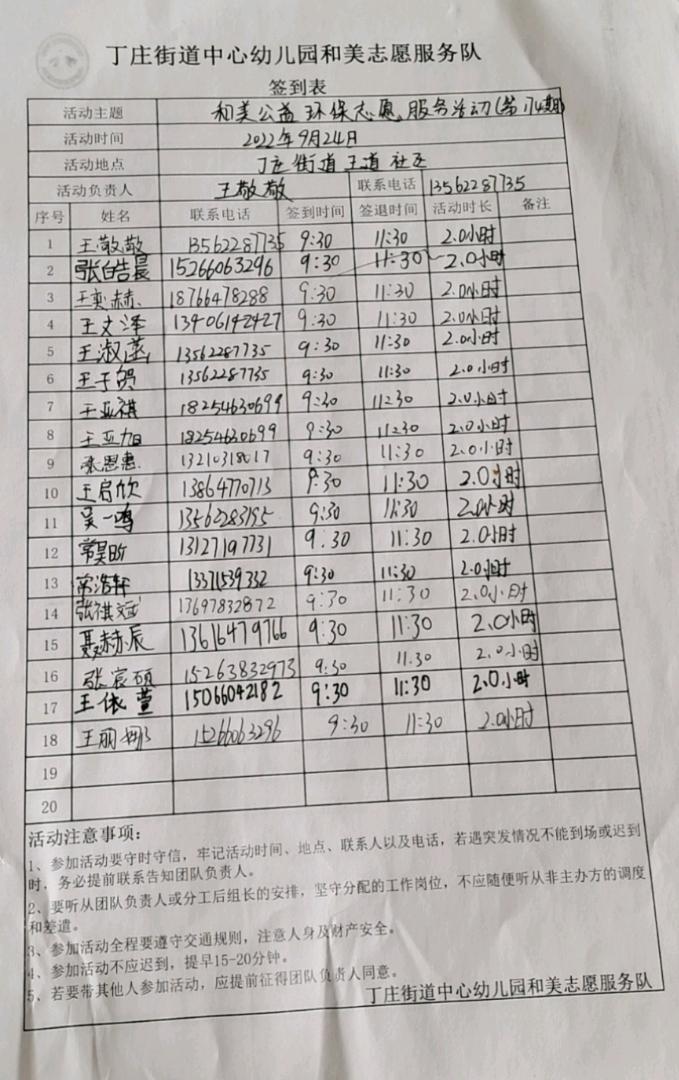 丁庄街道中心幼儿园和美志愿服务队
签到表
活动主题 和美公益环保志愿服务活动(第174期)
活动时间 2022年9月24日
活动地点 丁庄街道王道社区
活动负责人 王敬敬 联系电话 13562287735
序号 姓名 联系电话 签到时间 签退时间 活动时长 备注
1 王敬敬 13562287735 9:30 11:30 2.0小时
2 张皓晨 15266063296 9:30 11:30 2.0小时
3 王奕赫 18766478288 9:30 11:30 2.0小时
4 王文泽 13406142427 9:30 11:30 2.0小时
5 王淑菡 13562287735 9:30 11:30 2.0小时
6 王子贺 13562287735 9:30 11:30 2.0小时
7 王亚祺 18254630699 9:30 11:30 2.0小时
8 王亚旭 18254630699 9:30 11:30 2.0小时
9 张恩惠 13210318017 9:30 11:30 2.0小时
10 王启欣 13864770713 9:30 11:30 2.0小时
11 吴一鸣 13562283195 9:30 11:30 2.0小时
12 常昊昕 13127197731 9:30 11:30 2.0小时
13 常浩轩 13371539332 9:30 11:30 2.0小时
14 张祺斌 13697832872 9:30 11:30 2.0小时
15 聂赫辰 13616479766 9:30 11:30 2.0小时
16 张宸硕 15263832973 9:30 11:30 2.0小时
17 王依萱 15066042182 9:30 11:30 2.0小时
18 王丽娜 15266063296 9:30 11:30 2.0小时
19
20
活动注意事项:
1、参加活动要守时守信，牢记活动时间、地点、联系人以及电话，若遇突发情况不能到场或迟到
时，务必提前联系告知团队负责人。
2、要听从团队负责人或分工后组长的安排，坚守分配的工作岗位，不应随便听从非主办方的调度
和差遣。
3、参加活动全程要遵守交通规则，注意人身及财产安全。
4、参加活动不应迟到，提早15-20分钟。
5、若要带其他人参加活动，应提前征得团队负责人同意。
丁庄街道中心幼儿园和美志愿服务队